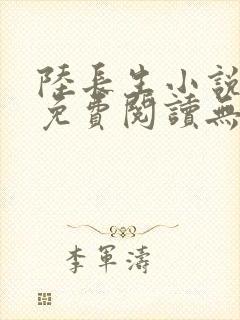 陸長生小說
免費閱讀無
李軍濤